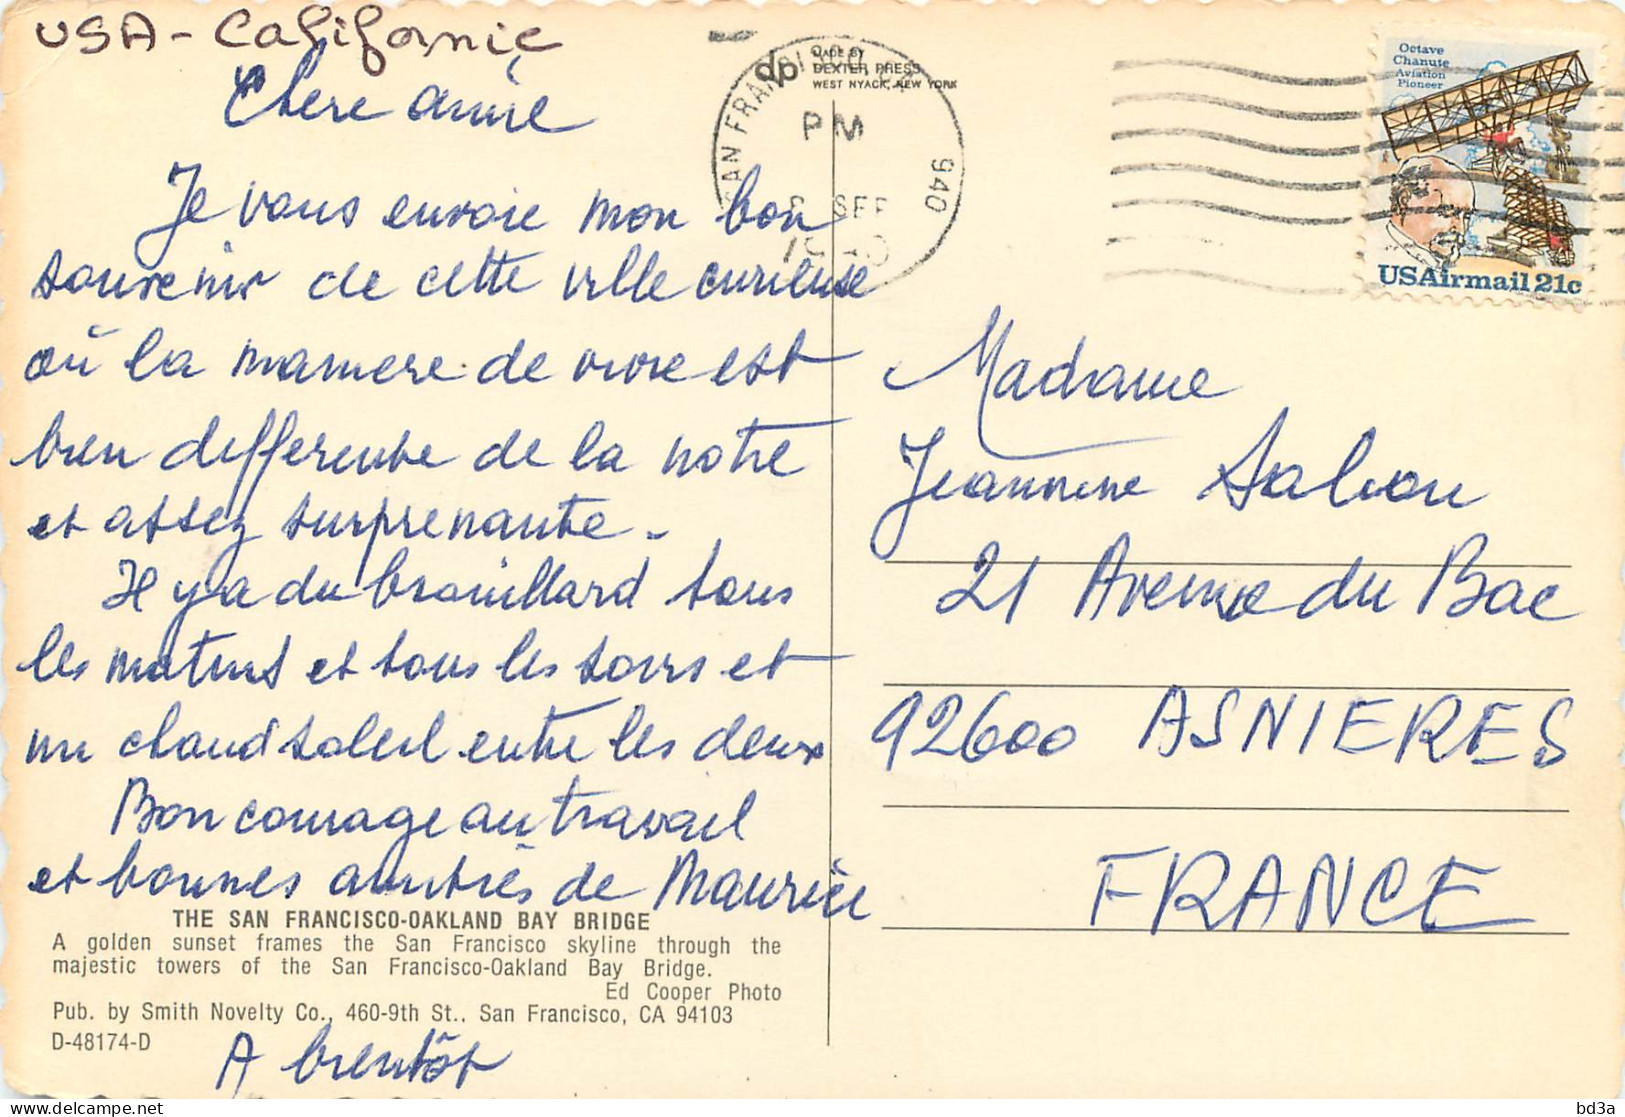 USA - Californie
Chère amie
Je vous envoie mon bon
souvenir de cette ville curieuse
où la maniere de vivre est
bien differente de la notre
et assez surprenante -
Il y a du brouillard tous
les matins et tous les soirs et
un chaud soleil entre les deux
Bon courage au travail
et bonnes amitiés de Maurice
A bientôt
THE SAN FRANCISCO-OAKLAND BAY BRIDGE
A golden sunset frames the San Francisco skyline through the
majestic towers of the San Francisco-Oakland Bay Bridge.
Ed Cooper Photo
Pub. by Smith Novelty Co., 460-9th St., San Francisco, CA 94103
D-48174-D
dp
MADE BY
DEXTER PRESS
WEST NYACK, NEW YORK
SAN FRANCISCO, CA
940
PM
SEP
Octave
Chanute
Aviation
Pioneer
USAirmail 21c
Madame
Jeannine
21 Avenue du Bac
92600 ASNIERES
FRANCE
bd3a